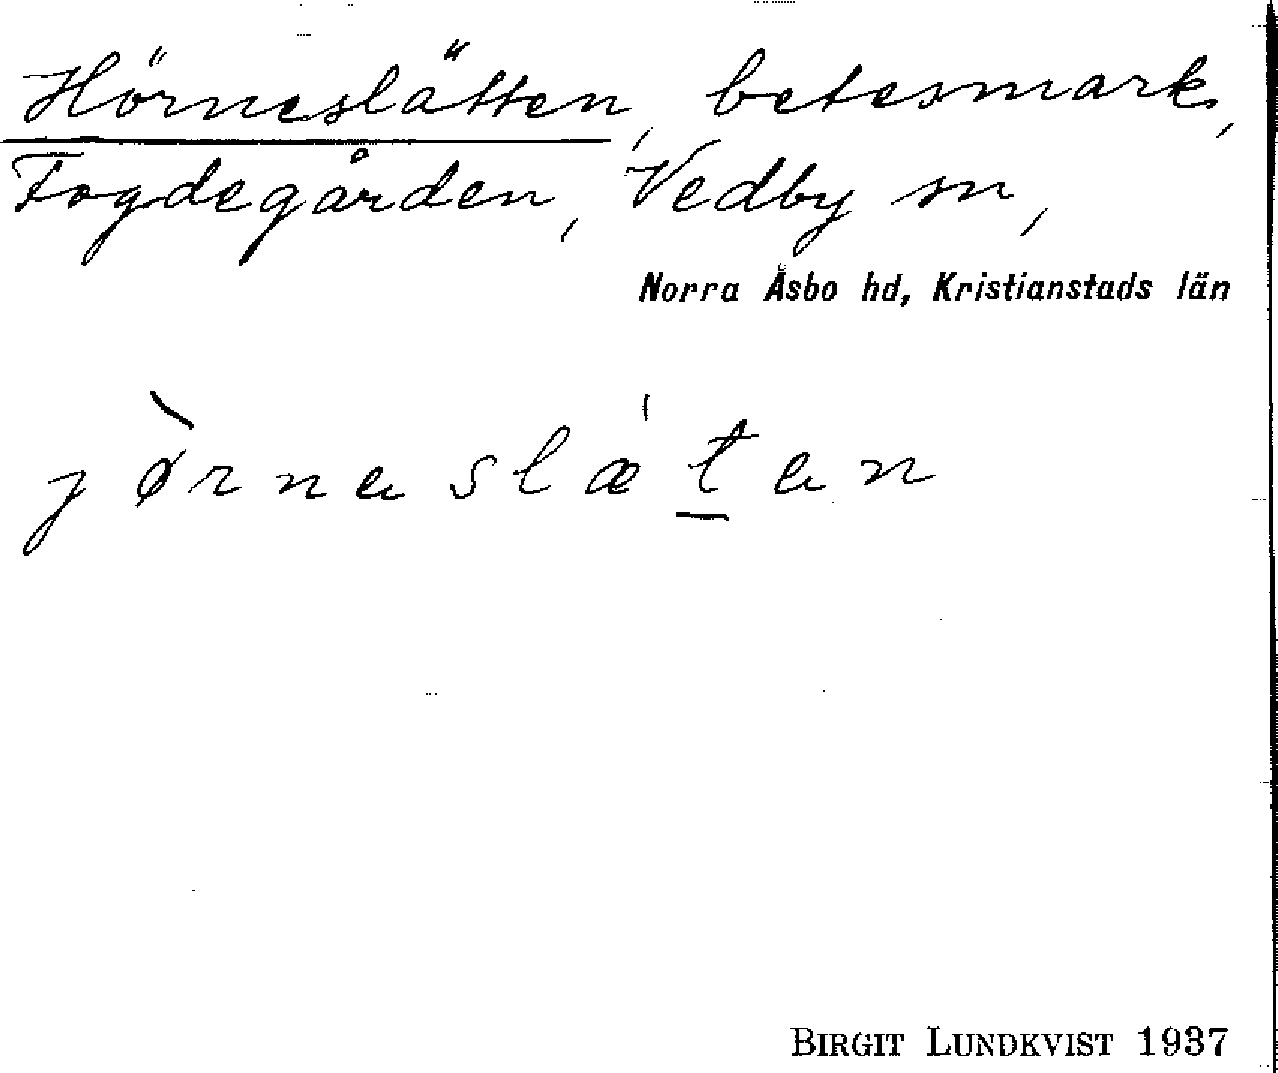 Hörneslätten, betesmark,
Fogdegården, Vedby sn,
Norra Åsbo hd, Kristianstads län
jø̀rnaslæ't̲an
BIRGIT LUNDKVIST 1937